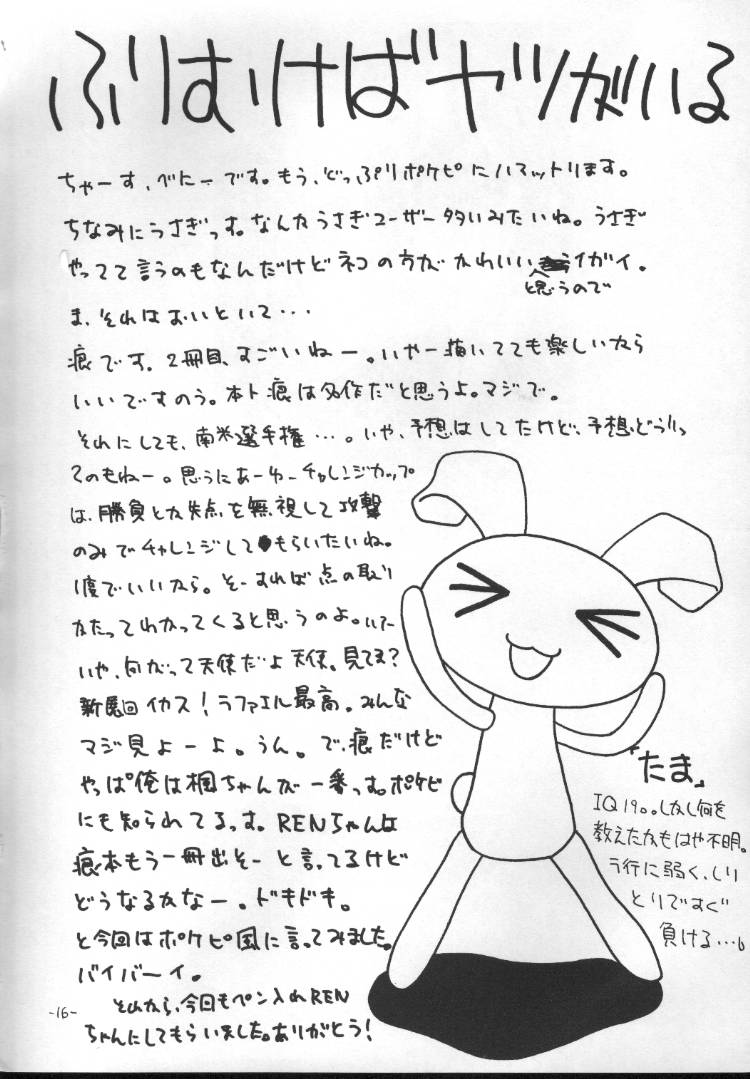 ふりむけばヤツがいる
ちゃーす、べにーです。もう、どっぷりポケピにハマットります。
ちなみにうさぎっす。なんかうさぎユーザー多いみたいね。うさぎ
やってて言うのもなんだけどネコの方がかわいいと思うのでイガイ。
ま、それはおいといて・・・
痕です。2冊目、すごいねー。いやー描いてても楽しいから
いいですのう。本ト痕は名作だと思うよ。マジで。
それにしても、南米選手権・・・。いや、予想はしてたけど、予想どうりっ
てのもねー。思うにあーゆーチャレンジカップ
は、勝負とか失点を無視して攻撃
のみでチャレンジしてもらいたいね。
1度でいいから。そーすれば点の取り
かたってわかってくると思うのよ。いてー
いや、向がって天使だよ天使。見てる?
新魔回イカス!ラファエル最高。みんな
マジ見よーよ。うん。で、痕だけど
やっぱ俺は楓ちゃんが一番っす。ポケピ
にも知られてるっす。RENちゃんは
痕本もう一冊出そーと言ってるけど
どうなるかなー。ドキドキ。
と今回はポケピ風に言ってみました。
バイバーイ。
それから、今回もペン入れREN
ちゃんにしてもらいました。ありがとう!
「たま」
IQ190。しかし何を
教えたかもはや不明。
ラ行に弱く、しり
とりですぐ
負ける…。
-16-